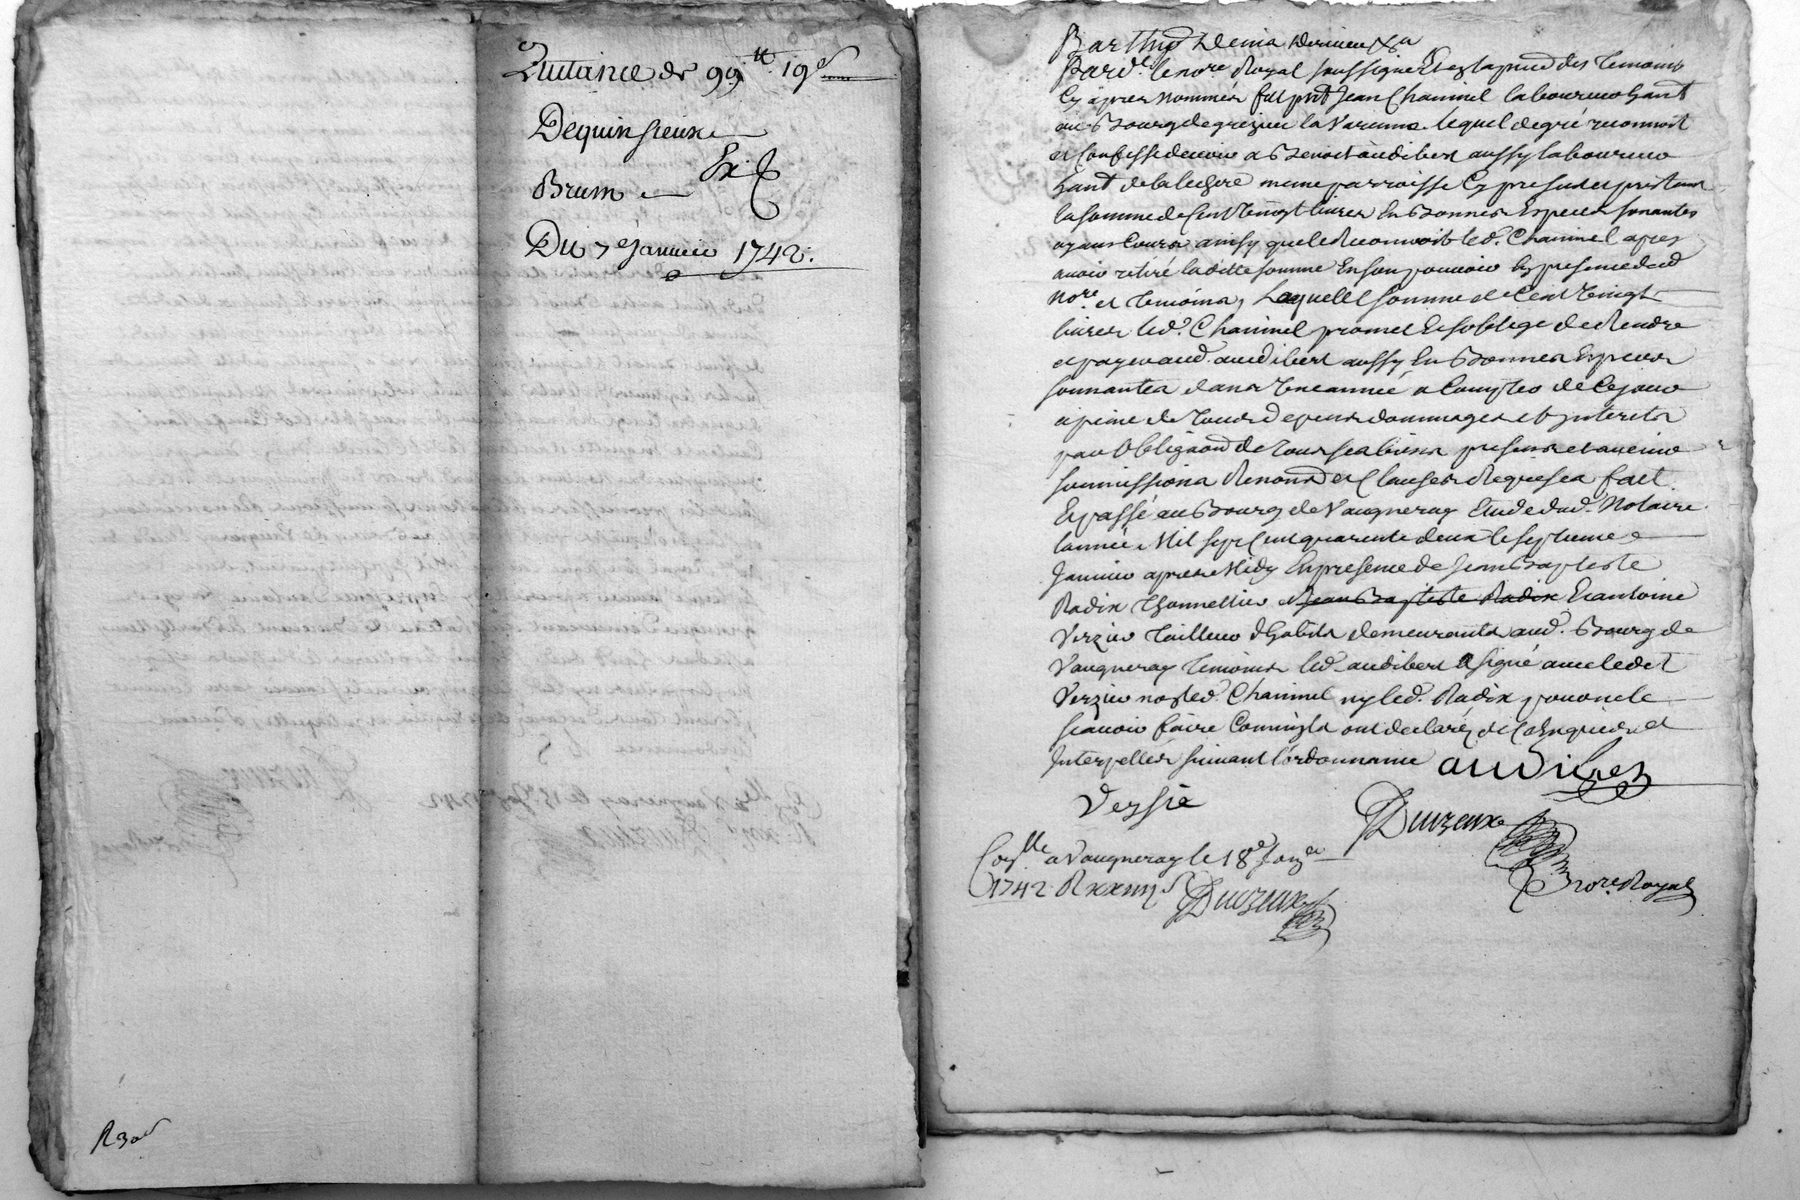 Quitance de 99ₜₜ 19ˢ
Dequinsieux
Ex
Brum
Du 7ᵉ Janvier 1742.
R 30ˢ
Pardᵗ le noʳᵉ Royal soussigné Et en la pnce des Temoins
Cy apres nommés fut pnt Jean Chaninel laboureur habant
au Bourg de grezieu la Varenne lequel de gré reconnoit
et Confesse devoir a Benoit audibert aussy laboureur
habant de la meme parroisse Cy present et acceptant
la somme de Cent vingt livres En Bonnes Especes sonantes
ayans Cours ainsy que le Reconnoit led. Chaninel apres
avoir retiré laditte somme En son pouvoir En presence dud
noʳᵉ et temoins, Laquelle somme de Cent vingt
livres led. Chaninel promet Et soblige de Rendre
et payer aud. audibert aussy En Bonnes Especes
sonnantes dans Une année a Compter de Ce jour
a peine de tous depens dommages et Interets
par Obligaõn de tous ses biens presens et avenir
soumissions Renons et Clauses Requises fait
Et passé au Bourg de Vaugneray Etude dud. Notaire
lannée Mil sept Cent quarente deux le septieme
Janvier apres Midy En presence de Jean Baptiste
Radix Thonnellier et Jean Baptiste Radix Et antoine
Verzier tailleur dhabits demeurants aud. Bourg de
Vaugneray temoins led. audibert a signé avec ledit
Verzier non led. Chaninel ny led. Radix pour ne le
scavoir faire Comm'ils ont declaré de Ce Enquis et
Interpellés suivant l'ordonnance audiber
Versie
Duizeux
noʳᵉ Royal
Coⁿˡˡᵉ a Vaugneray le 18ᵉ Janᵉʳ
1742 R xxiiijˢ Duizeux